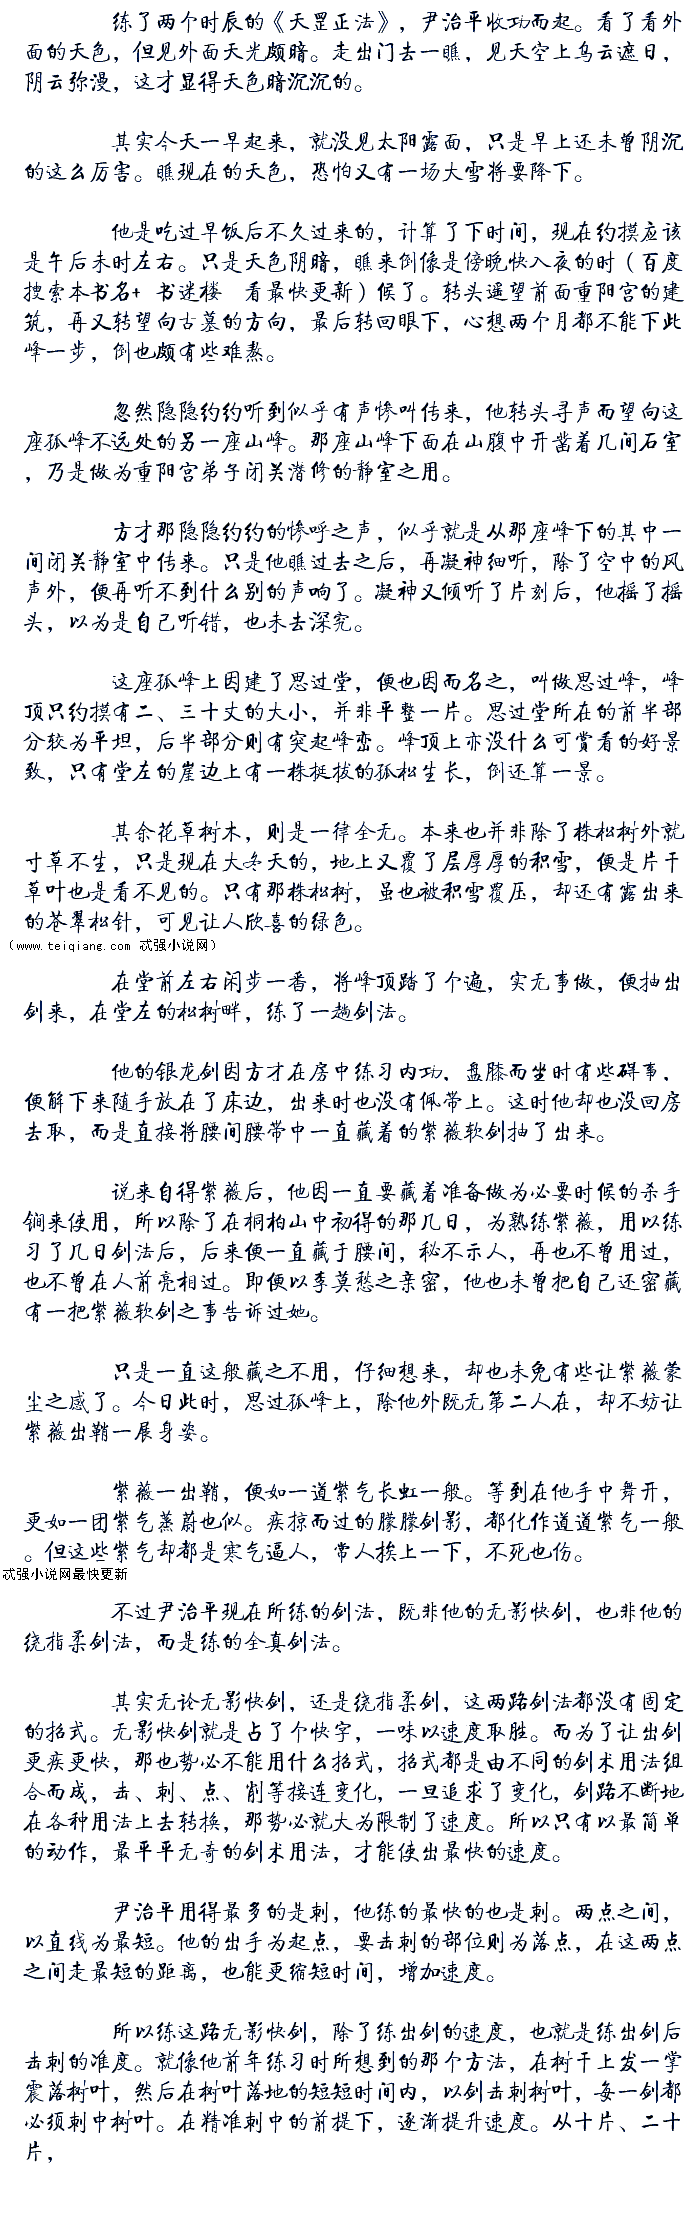 练了两个时辰的《天罡正法》，尹治平收功而起。看了看外
面的天色，但见外面天光颇暗。走出门去一瞧，见天空上乌云遮日，
阴云弥漫，这才显得天色暗沉沉的。
其实今天一早起来，就没见太阳露面，只是早上还未曾阴沉
的这么厉害。瞧现在的天色，恐怕又有一场大雪将要降下。
他是吃过早饭后不久过来的，计算了下时间，现在约摸应该
是午后未时左右。只是天色阴暗，瞧来倒像是傍晚快入夜的时（百度
搜索本书名+ 书迷楼 看最快更新）候了。转头遥望前面重阳宫的建
筑，再又转望向古墓的方向，最后转回眼下，心想两个月都不能下此
峰一步，倒也颇有些难熬。
忽然隐隐约约听到似乎有声惨叫传来，他转头寻声而望向这
座孤峰不远处的另一座山峰。那座山峰下面在山腹中开凿着几间石室
，乃是做为重阳宫弟子闭关潜修的静室之用。
方才那隐隐约约的惨呼之声，似乎就是从那座峰下的其中一
间闭关静室中传来。只是他瞧过去之后，再凝神细听，除了空中的风
声外，便再听不到什么别的声响了。凝神又倾听了片刻后，他摇了摇
头，以为是自己听错，也未去深究。
这座孤峰上因建了思过堂，便也因而名之，叫做思过峰，峰
顶只约摸有二、三十丈的大小，并非平整一片。思过堂所在的前半部
分较为平坦，后半部分则有突起峰峦。峰顶上亦没什么可赏看的好景
致，只有堂左的崖边上有一株挺拔的孤松生长，倒还算一景。
其余花草树木，则是一律全无。本来也并非除了株松树外就
寸草不生，只是现在大冬天的，地上又覆了层厚厚的积雪，便是片干
草叶也是看不见的。只有那株松树，虽也被积雪覆压，却还有露出来
的苍翠松针，可见让人欣喜的绿色。
（www.teiqiang.com 忒强小说网）
在堂前左右闲步一番，将峰顶踏了个遍，实无事做，便抽出
剑来，在堂左的松树畔，练了一趟剑法。
他的银龙剑因方才在房中练习内功，盘膝而坐时有些碍事，
便解下来随手放在了床边，出来时也没有佩带上。这时他却也没回房
去取，而是直接将腰间腰带中一直藏着的紫薇软剑抽了出来。
说来自得紫薇后，他因一直要藏着准备做为必要时候的杀手
锏来使用，所以除了在桐柏山中初得的那几日，为熟练紫薇，用以练
习了几日剑法后，后来便一直藏于腰间，秘不示人，再也不曾用过，
也不曾在人前亮相过。即便以李莫愁之亲密，他也未曾把自己还密藏
有一把紫薇软剑之事告诉过她。
只是一直这般藏之不用，仔细想来，却也未免有些让紫薇蒙
尘之感了。今日此时，思过孤峰上，除他外既无第二人在，却不妨让
紫薇出鞘一展身姿。
紫薇一出鞘，便如一道紫气长虹一般。等到在他手中舞开，
更如一团紫气蒸蔚也似。疾掠而过的朦朦剑影，都化作道道紫气一般
。但这些紫气却都是寒气逼人，常人挨上一下，不死也伤。
忒强小说网最快更新
不过尹治平现在所练的剑法，既非他的无影快剑，也非他的
绕指柔剑法，而是练的全真剑法。
其实无论无影快剑，还是绕指柔剑，这两路剑法都没有固定
的招式。无影快剑就是占了个快字，一味以速度取胜。而为了让出剑
更疾更快，那也势必不能用什么招式，招式都是由不同的剑术用法组
合而成，击、刺、点、削等接连变化，一旦追求了变化，剑路不断地
在各种用法上去转换，那势必就大为限制了速度。所以只有以最简单
的动作，最平平无奇的剑术用法，才能使出最快的速度。
尹治平用得最多的是刺，他练的最快的也是刺。两点之间，
以直线为最短。他的出手为起点，要击刺的部位则为落点，在这两点
之间走最短的距离，也能更缩短时间，增加速度。
所以练这路无影快剑，除了练出剑的速度，也就是练出剑后
击刺的准度。就像他前年练习时所想到的那个方法，在树干上发一掌
震落树叶，然后在树叶落地的短短时间内，以剑击刺树叶，每一剑都
必须刺中树叶。在精准刺中的前提下，逐渐提升速度。从十片、二十
片，